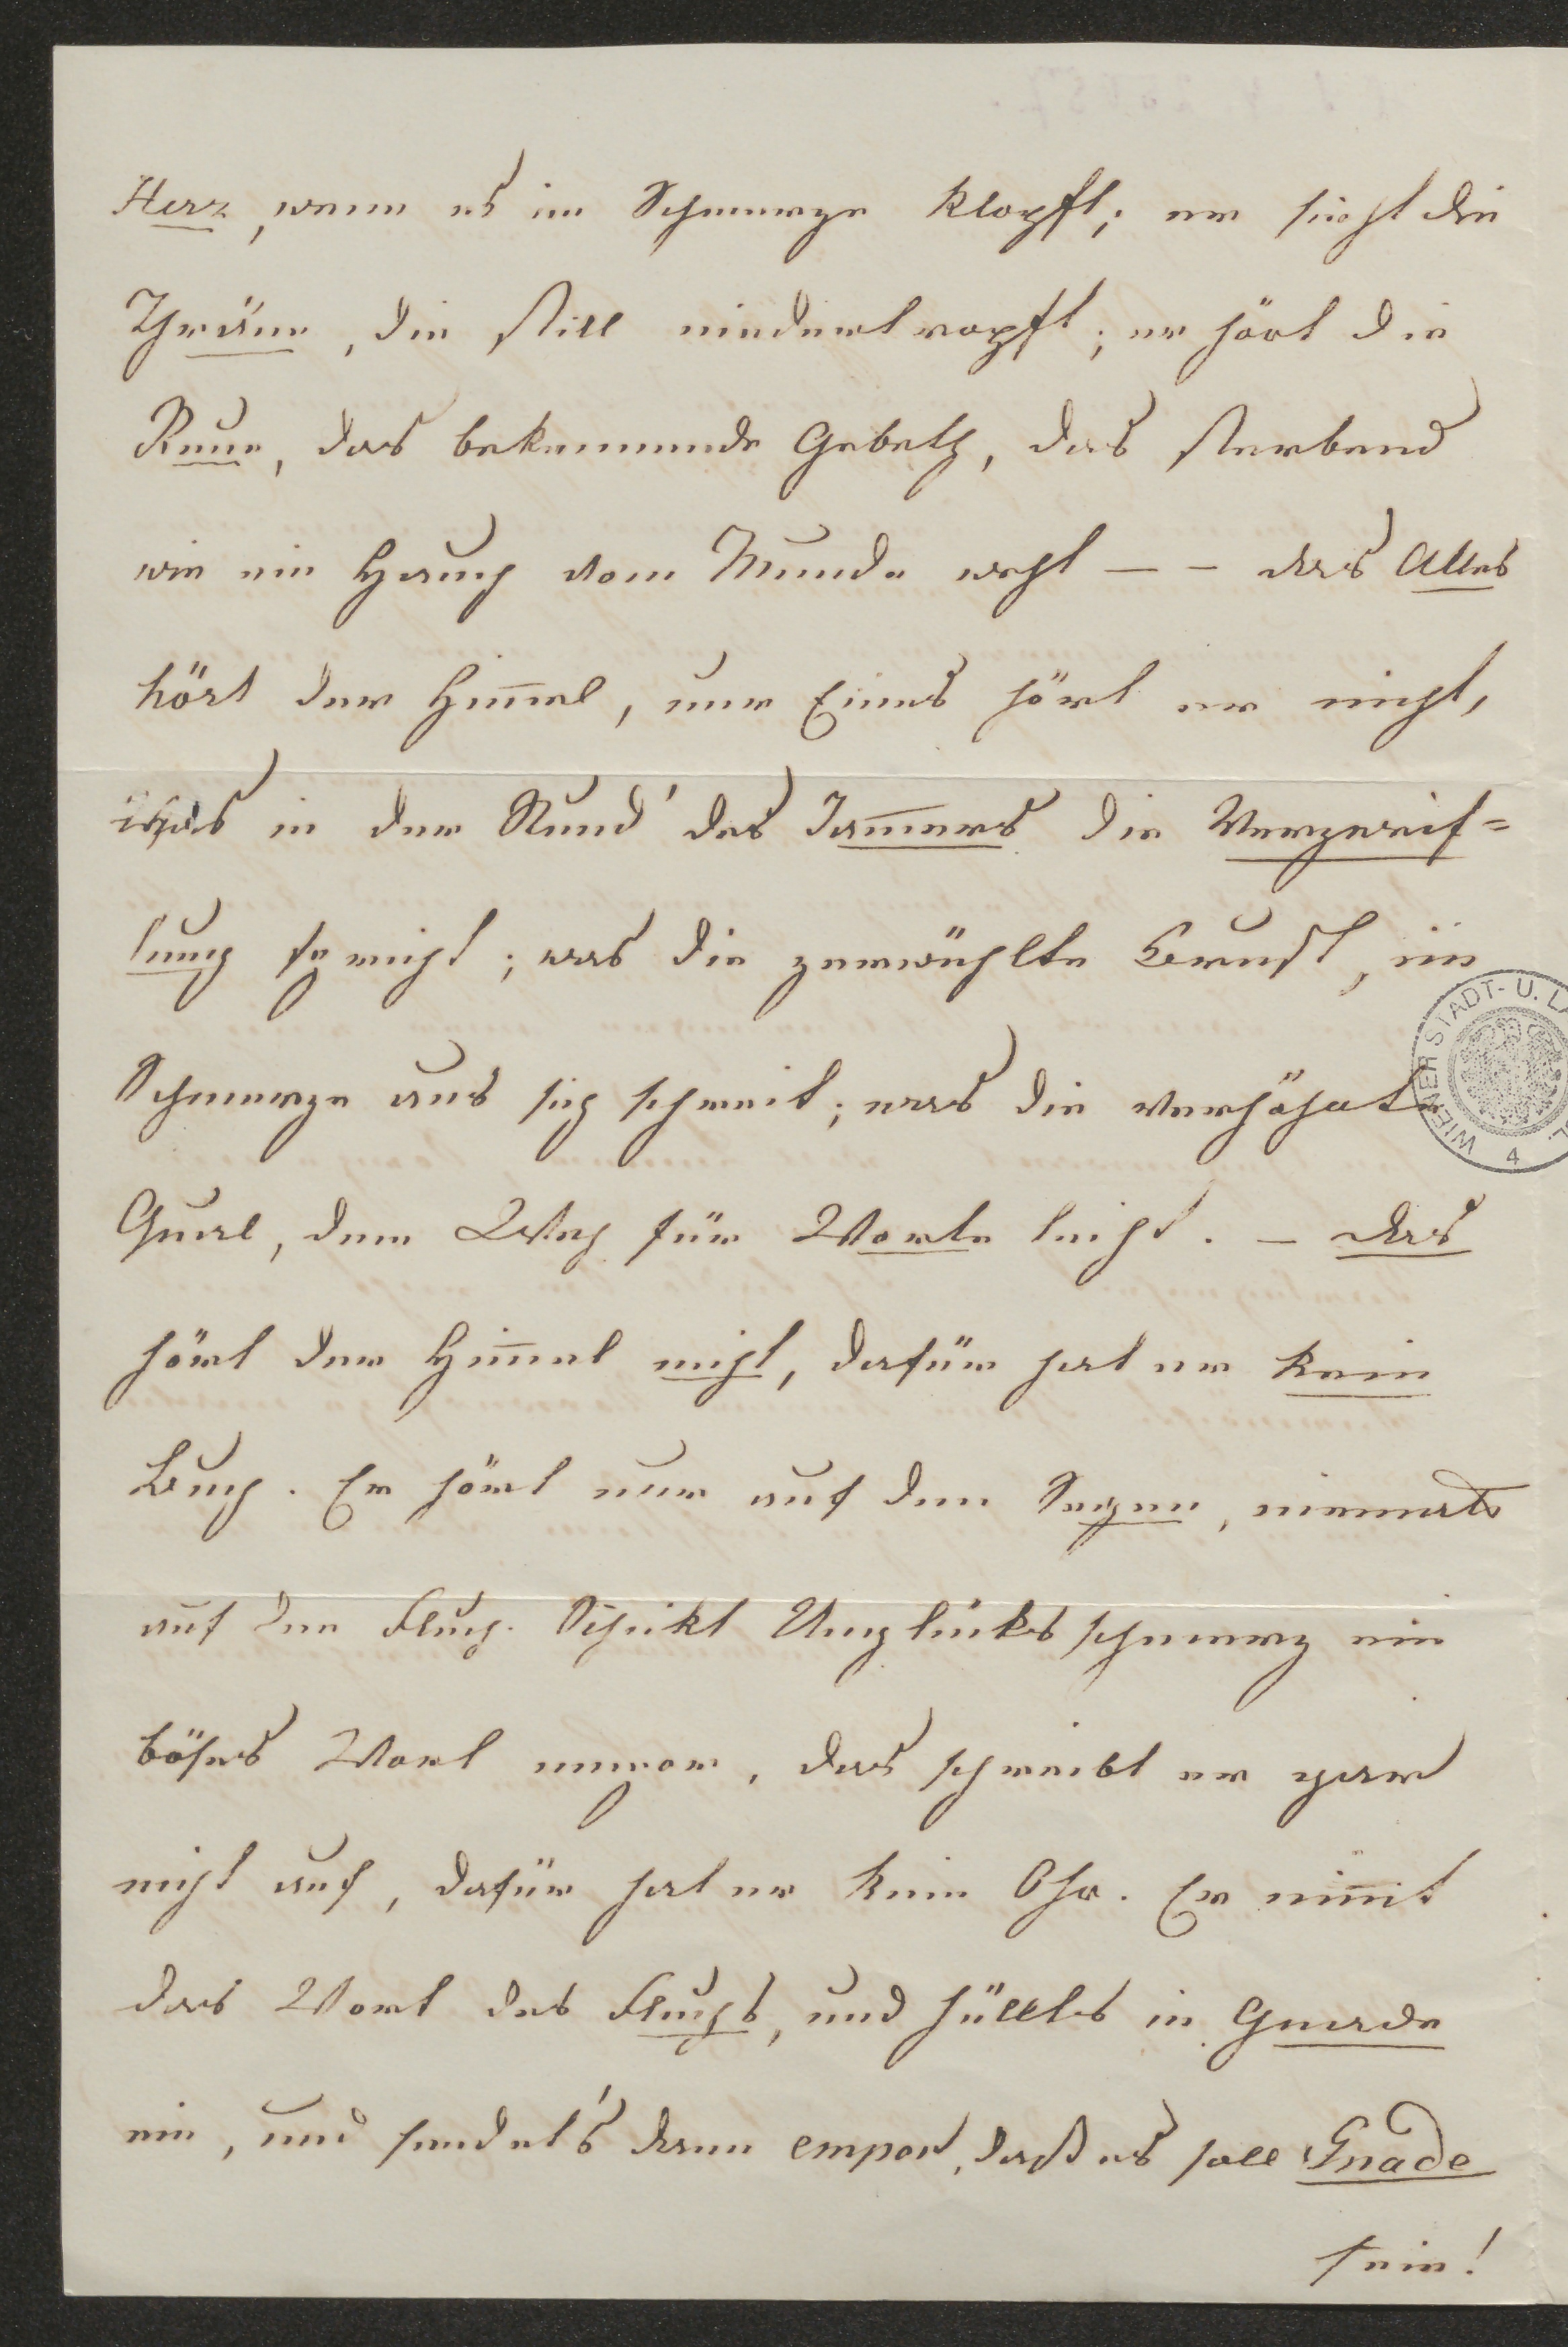 Herz, wenn es im Schmerze klopft; er sieht die
Thräne, die still niedertropft; er hört die
Reue, das bekennende Gebeth, das sterbend
wie ein Hauch vom Munde weht – – das Alles
hört der Him̅el, nur Eines hört er nicht,
was in der Stund' des Jam̅ers die Verzweif=
lung spricht; was die zerwühlte Brust, im
Schmerze aus sich schreit; was die verhöhnte
Qual, dem Weh für Worte leiht. – das
hört der Him̅el nicht, dafür hat er kein
Buch. Er hört nur auf den Segen, niemals
auf den Fluch. Schickt Unglücksschmerz ein
böses Wort empor, das schreibt er gar
nicht auf, dafür hat er kein Ohr. Er nim̅t
das Wort des Fluchs, und hüllt es in Gnade
ein, und sendet's dann empor, daß es soll Gnade
sein!
WIENER STADT- U. LA
4